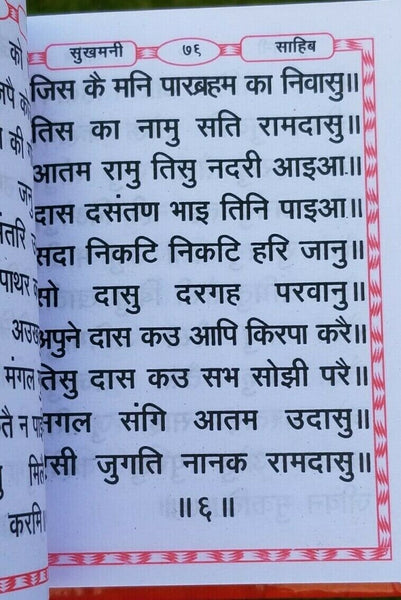 सुखमनी ७६ साहिब
जिस कै मनि पारब्रहम का निवासु॥
तिस का नामु सति रामदासु॥
आतम रामु तिसु नदरी आइआ॥
दास दसंतण भाइ तिनि पाइआ॥
सदा निकटि निकटि हरि जानु॥
सो दासु दरगह परवानु॥
अपुने दास कउ आपि किरपा करै॥
तिसु दास कउ सभ सोझी परै॥
सगल संगि आतम उदासु॥
जुगति नानक रामदासु॥
॥६॥
को
की
मंगल
तै न
करमि॥